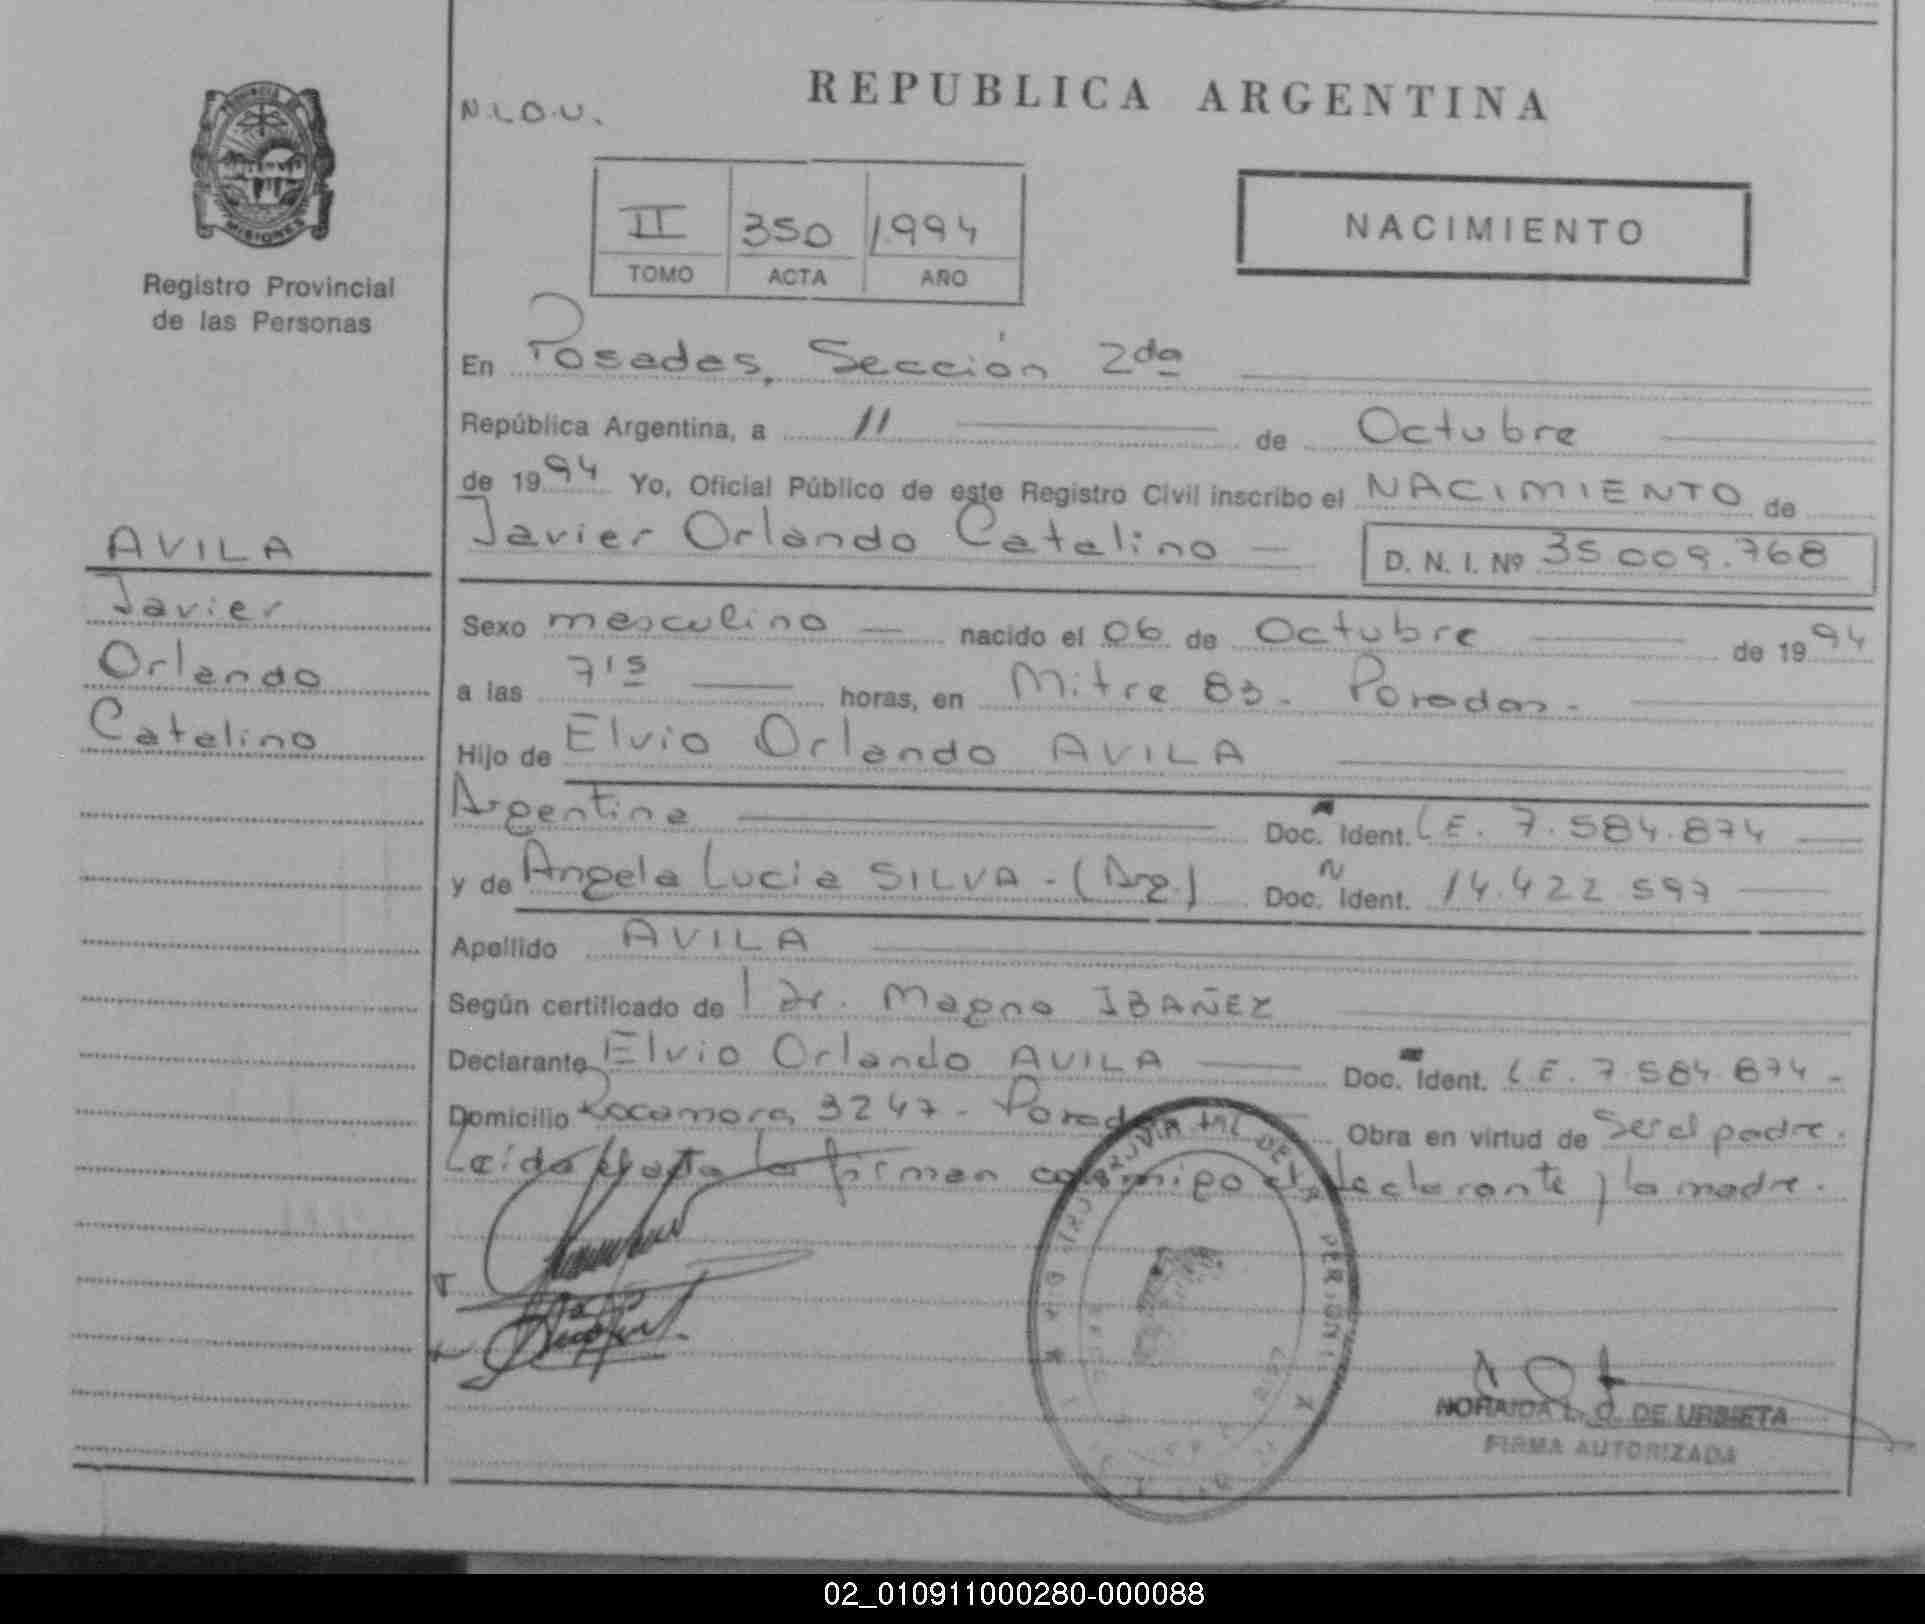 REPUBLICA ARGENTINA
N.L.O.U.
PROVINCIA DE
MISIONES
Registro Provincial
de las Personas
II 350 1994
TOMO ACTA AÑO
NACIMIENTO
En Posadas, Sección 2da
República Argentina, a 11 de Octubre
de 1994 Yo, Oficial Público de este Registro Civil inscribo el NACIMIENTO de
Javier Orlando Catalino D. N. I. Nº 35009.768
AVILA
Javier
Orlando
Catalino
Sexo masculino nacido el 06 de Octubre de 1994
a las 7 15 horas, en Mitre 83. Posadas.
Hijo de Elvio Orlando AVILA
Argentina Doc. Ident. L.E. 7.584.874
y de Angela Lucia SILVA - (Arg.) Doc. Ident. 14.422.597
Apellido AVILA
Según certificado de Dr. Magno IBAÑEZ
Declarante Elvio Orlando AVILA Doc. Ident. L.E. 7.584.874
Domicilio Rocamora 3247 - Posadas Obra en virtud de Ser el padre.
Leída el acta la firman conmigo el declarante y la madre.
NORAIDA L. O. DE URBIETA
FIRMA AUTORIZADA
02_010911000280-000088